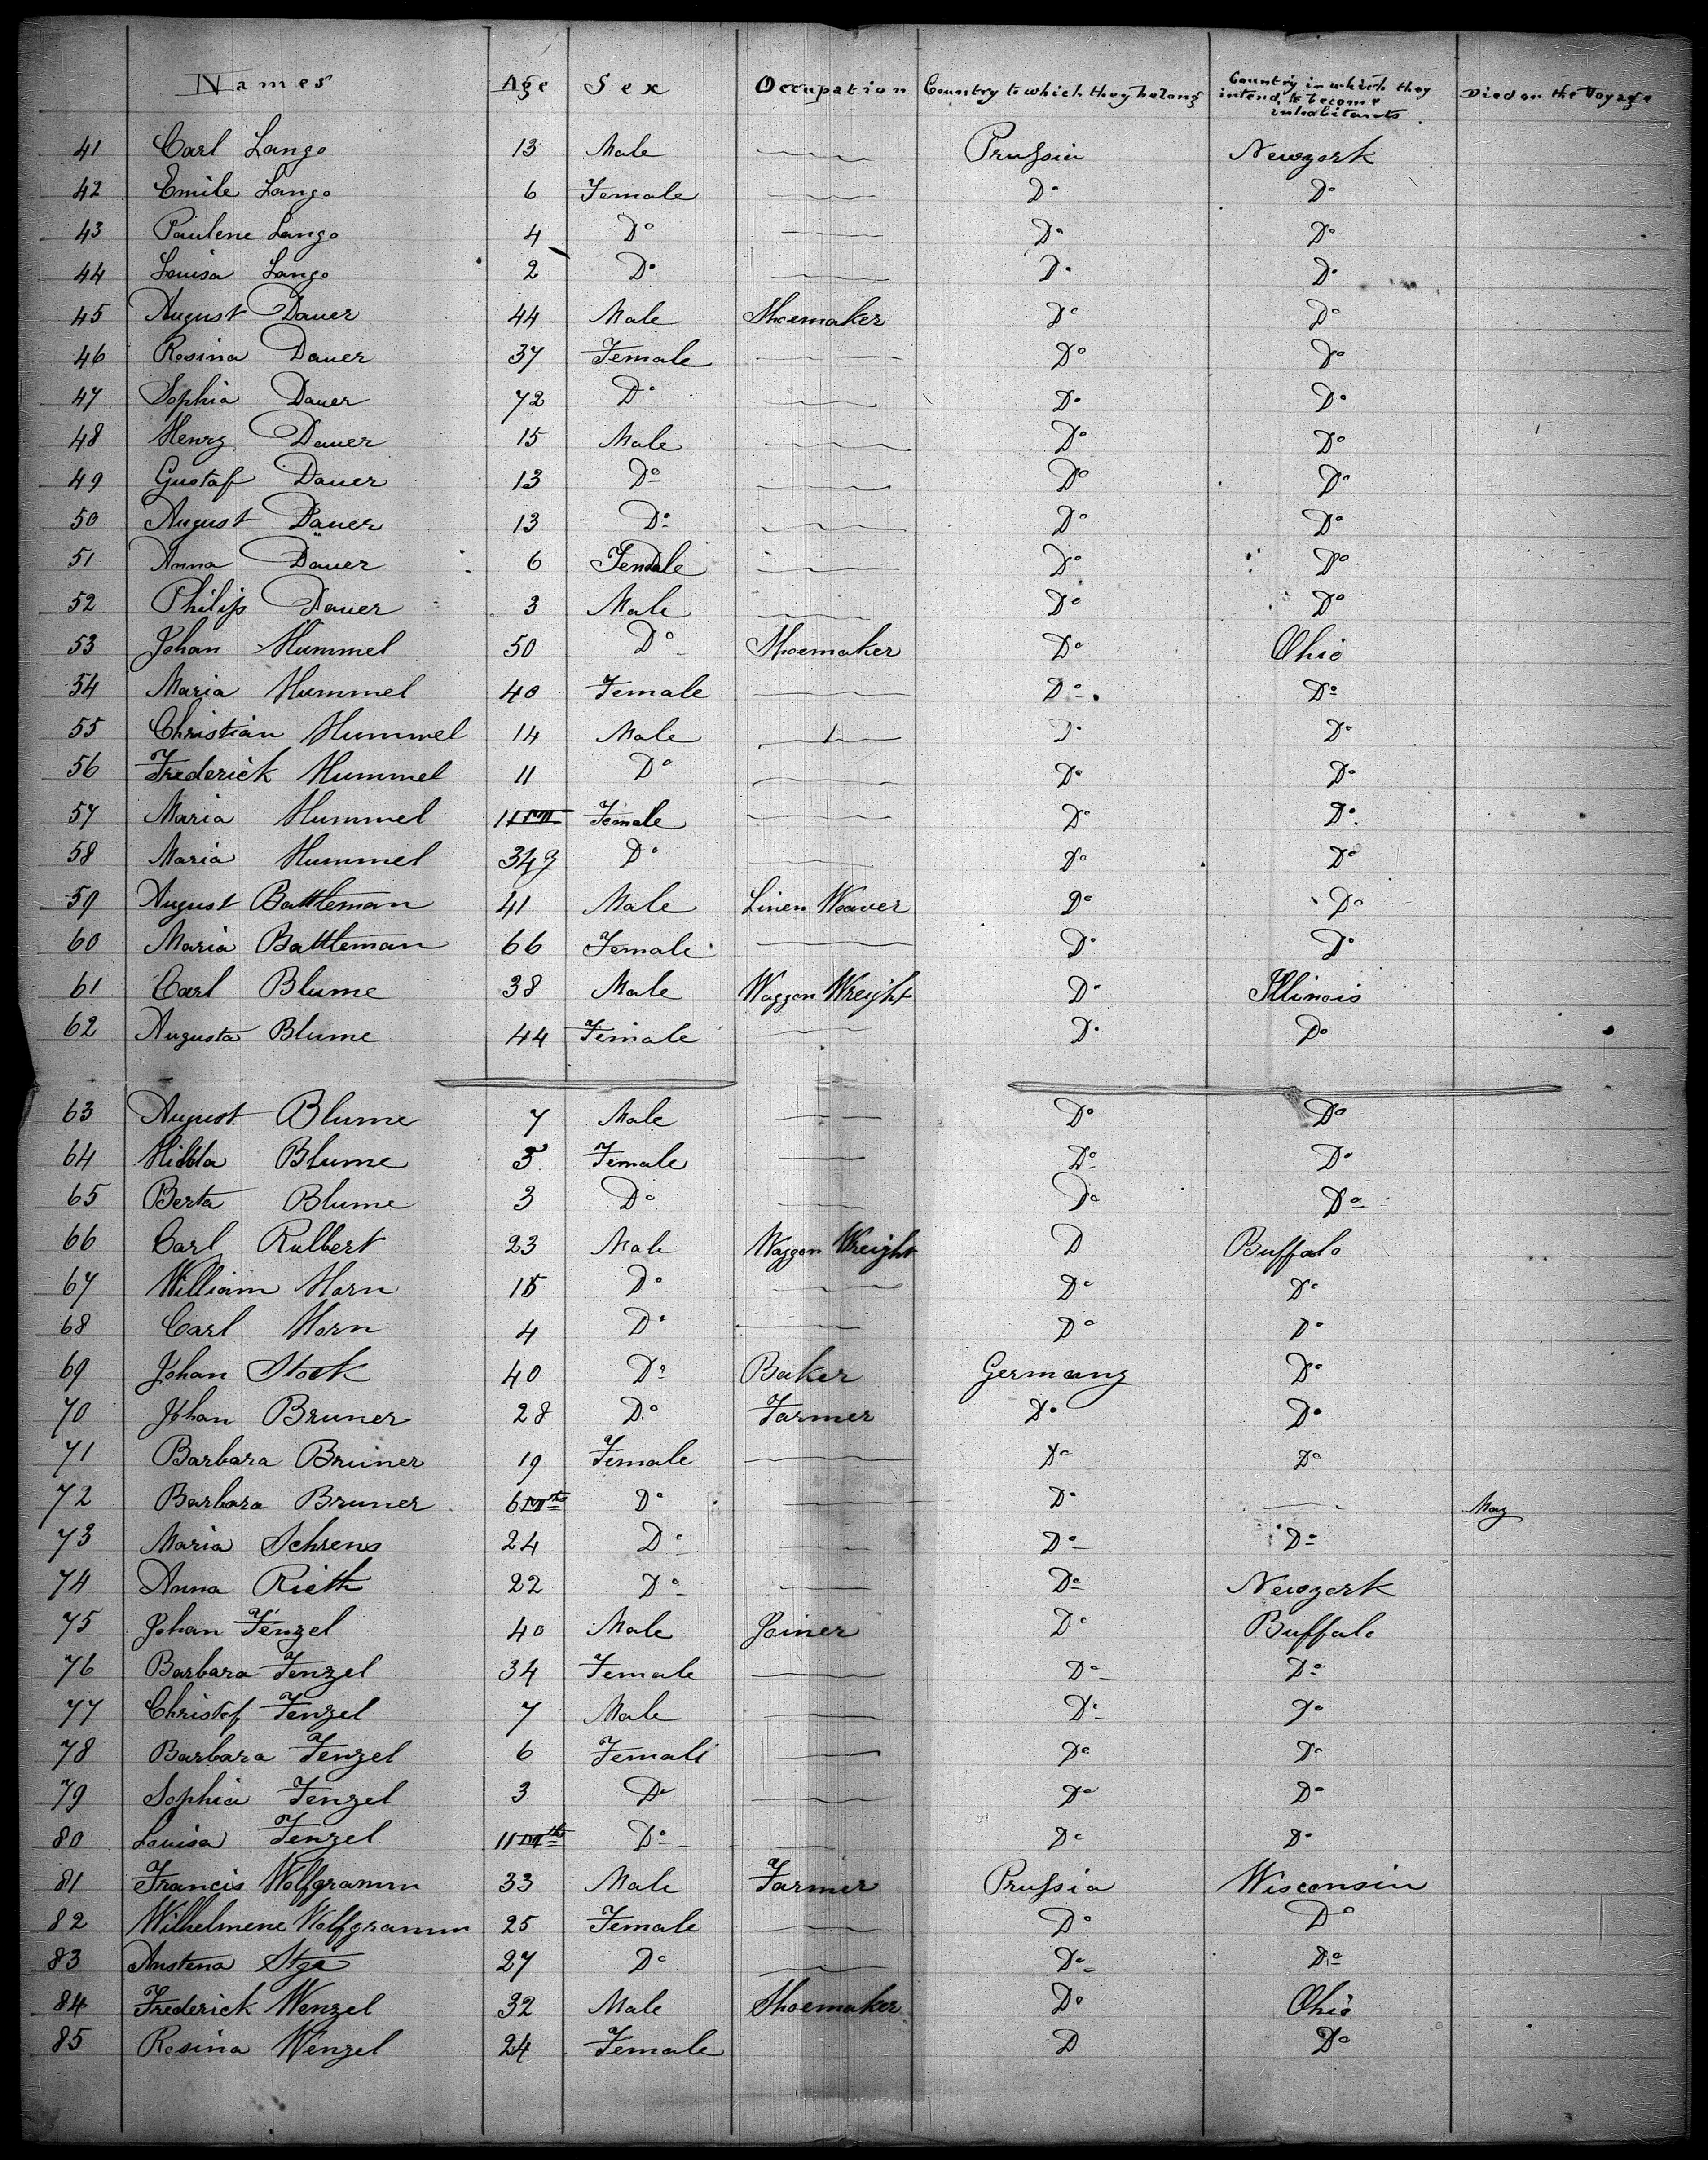 Names Age Sex Occupation Country to which they belong Country in which they intend to become inhabitants Died on the Voyage
41 Carl Lange 13 Male Prussia Newyork
42 Emile Lange 6 Female Do Do
43 Paulene Lange 4 Do Do Do
44 Louisa Lange 2 Do Do Do
45 August Dauer 44 Male Shoemaker Do Do
46 Rosina Dauer 37 Female Do Do
47 Sophia Dauer 72 Do Do Do
48 Henry Dauer 15 Male Do Do
49 Gustaf Dauer 13 Do Do Do
50 August Dauer 13 Do Do Do
51 Anna Dauer 6 Female Do Do
52 Philip Dauer 3 Male Do Do
53 Johan Hummel 50 Do Shoemaker Do Ohio
54 Maria Hummel 40 Female Do Do
55 Christian Hummel 14 Male Do Do
56 Frederick Hummel 11 Do Do Do
57 Maria Hummel Female Do Do
58 Maria Hummel Do Do Do
59 August Battleman 41 Male Linen Weaver Do Do
60 Maria Battleman 66 Female Do Do
61 Carl Blume 38 Male Waggon Wreight Do Illinois
62 Augusta Blume 44 Female Do Do
63 August Blume 7 Male Do Do
64 Blume 5 Female Do Do
65 Berta Blume 3 Do Do Do
66 Carl Rulbert 23 Male Waggon Wreight D Buffalo
67 William Horn 15 Do Do Do
68 Carl Horn 4 Do Do Do
69 Johan Stock 40 Do Baker Germany Do
70 Johan Bruner 28 Do Farmer Do Do
71 Barbara Bruner 19 Female Do Do
72 Barbara Bruner 6 Mths Do Do May
73 Maria Schrens 24 Do Do Do
74 Anna Rieth 22 Do Do Newyork
75 Johan Fenzel 40 Male Joiner Do Buffalo
76 Barbara Fenzel 34 Female Do Do
77 Christof Fenzel 7 Male Do Do
78 Barbara Fenzel 6 Female Do Do
79 Sophia Fenzel 3 Do Do Do
80 Louisa Fenzel 11 Mths Do Do Do
81 Francis Wolfgramm 33 Male Farmer Prussia Wisconsin
82 Wilhelmene Wolfgramm 25 Female Do Do
83 Austena 27 Do Do Do
84 Frederick Wenzel 32 Male Shoemaker Do Ohio
85 Rosina Wenzel 24 Female D Do